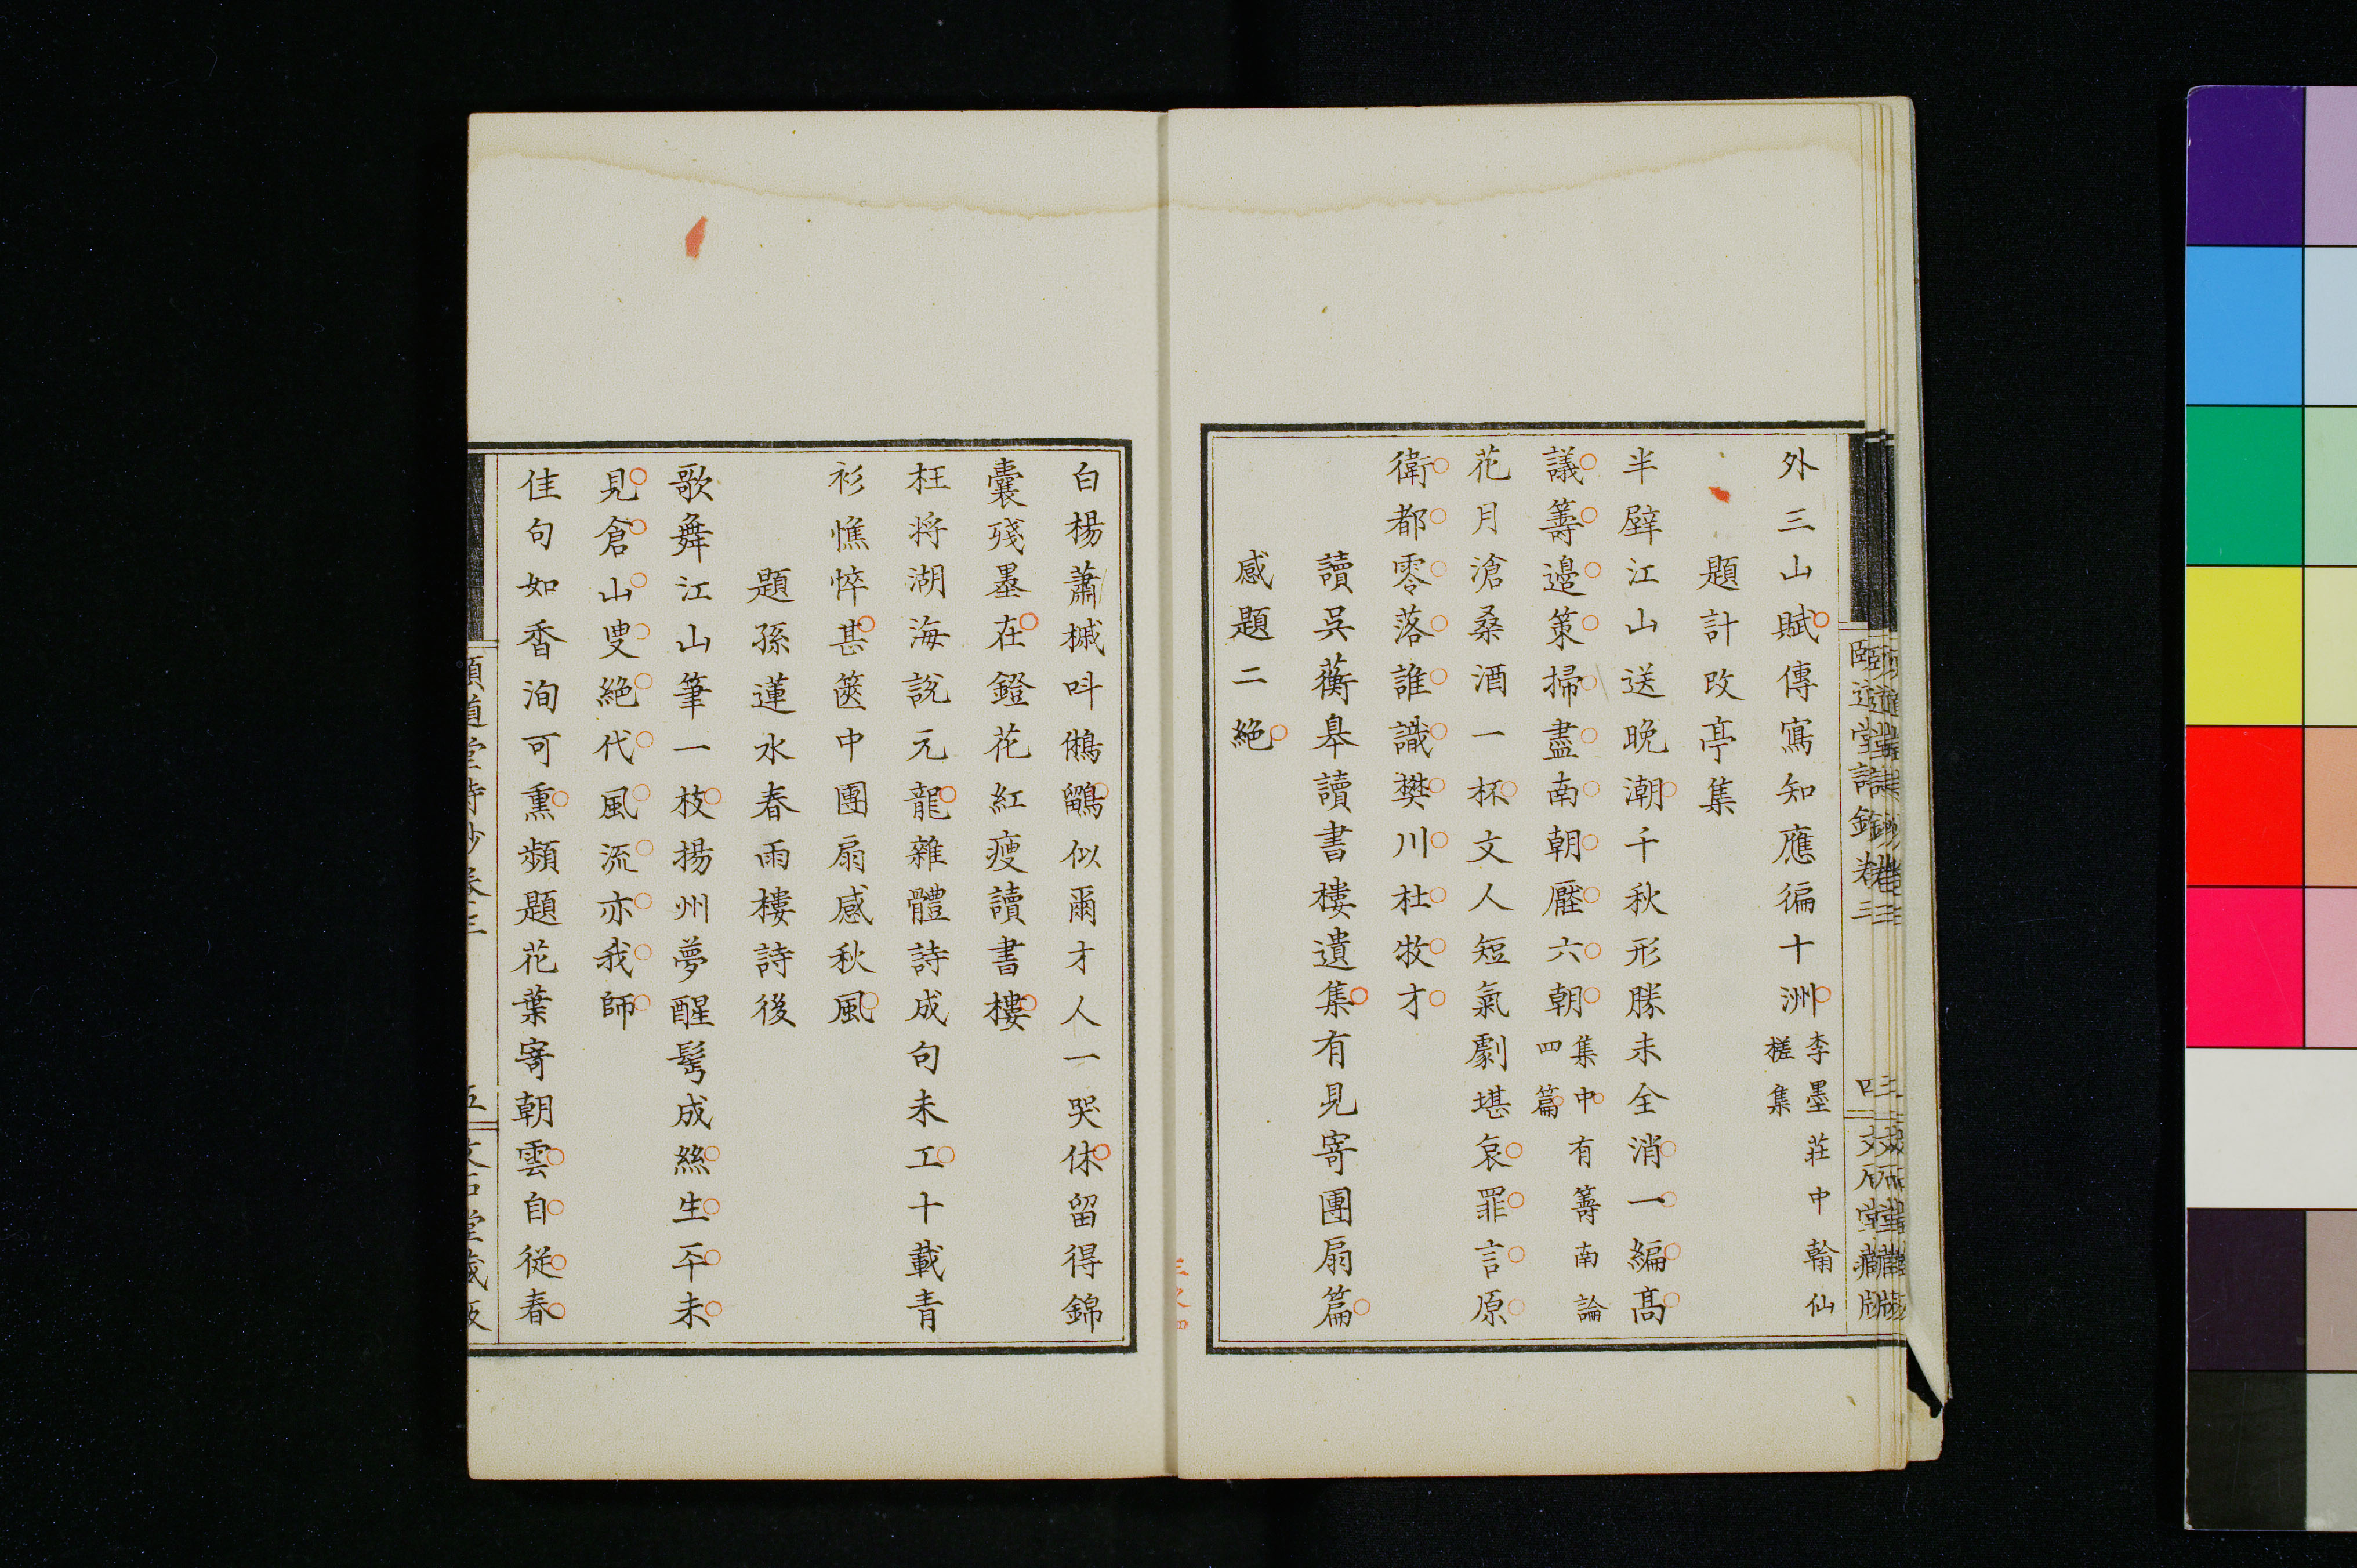 外三山賦傳寫知應徧十洲李墨莊中翰仙
槎集
題計改亭集
半壁江山送晚潮千秋形勝未全消一編高
議籌邊策掃盡南朝壓六朝集中有籌南論
四篇
花月滄桑酒一杯文人短氣劇堪哀罪言原
衛都零落誰識樊川杜牧才
讀吳蘅皋讀書樓遺集有見寄團扇篇
感題二絕
頤道堂詩鈔卷三
四
文石堂藏版
白楊蕭槭呌鵂鶹似爾才人一哭休留得錦
囊殘墨在鐙花紅瘦讀書樓
枉将湖海説元龍雜體詩成句未工十載青
衫憔悴甚篋中團扇感秋風
題孫蓮水春雨樓詩後
歌舞江山筆一枝揚州夢醒髩成絲生平未
見倉山叟絕代風流亦我師
佳句如香洵可熏蘋題花葉寄朝雲自從春
頤道堂詩鈔卷三
五
文石堂藏版